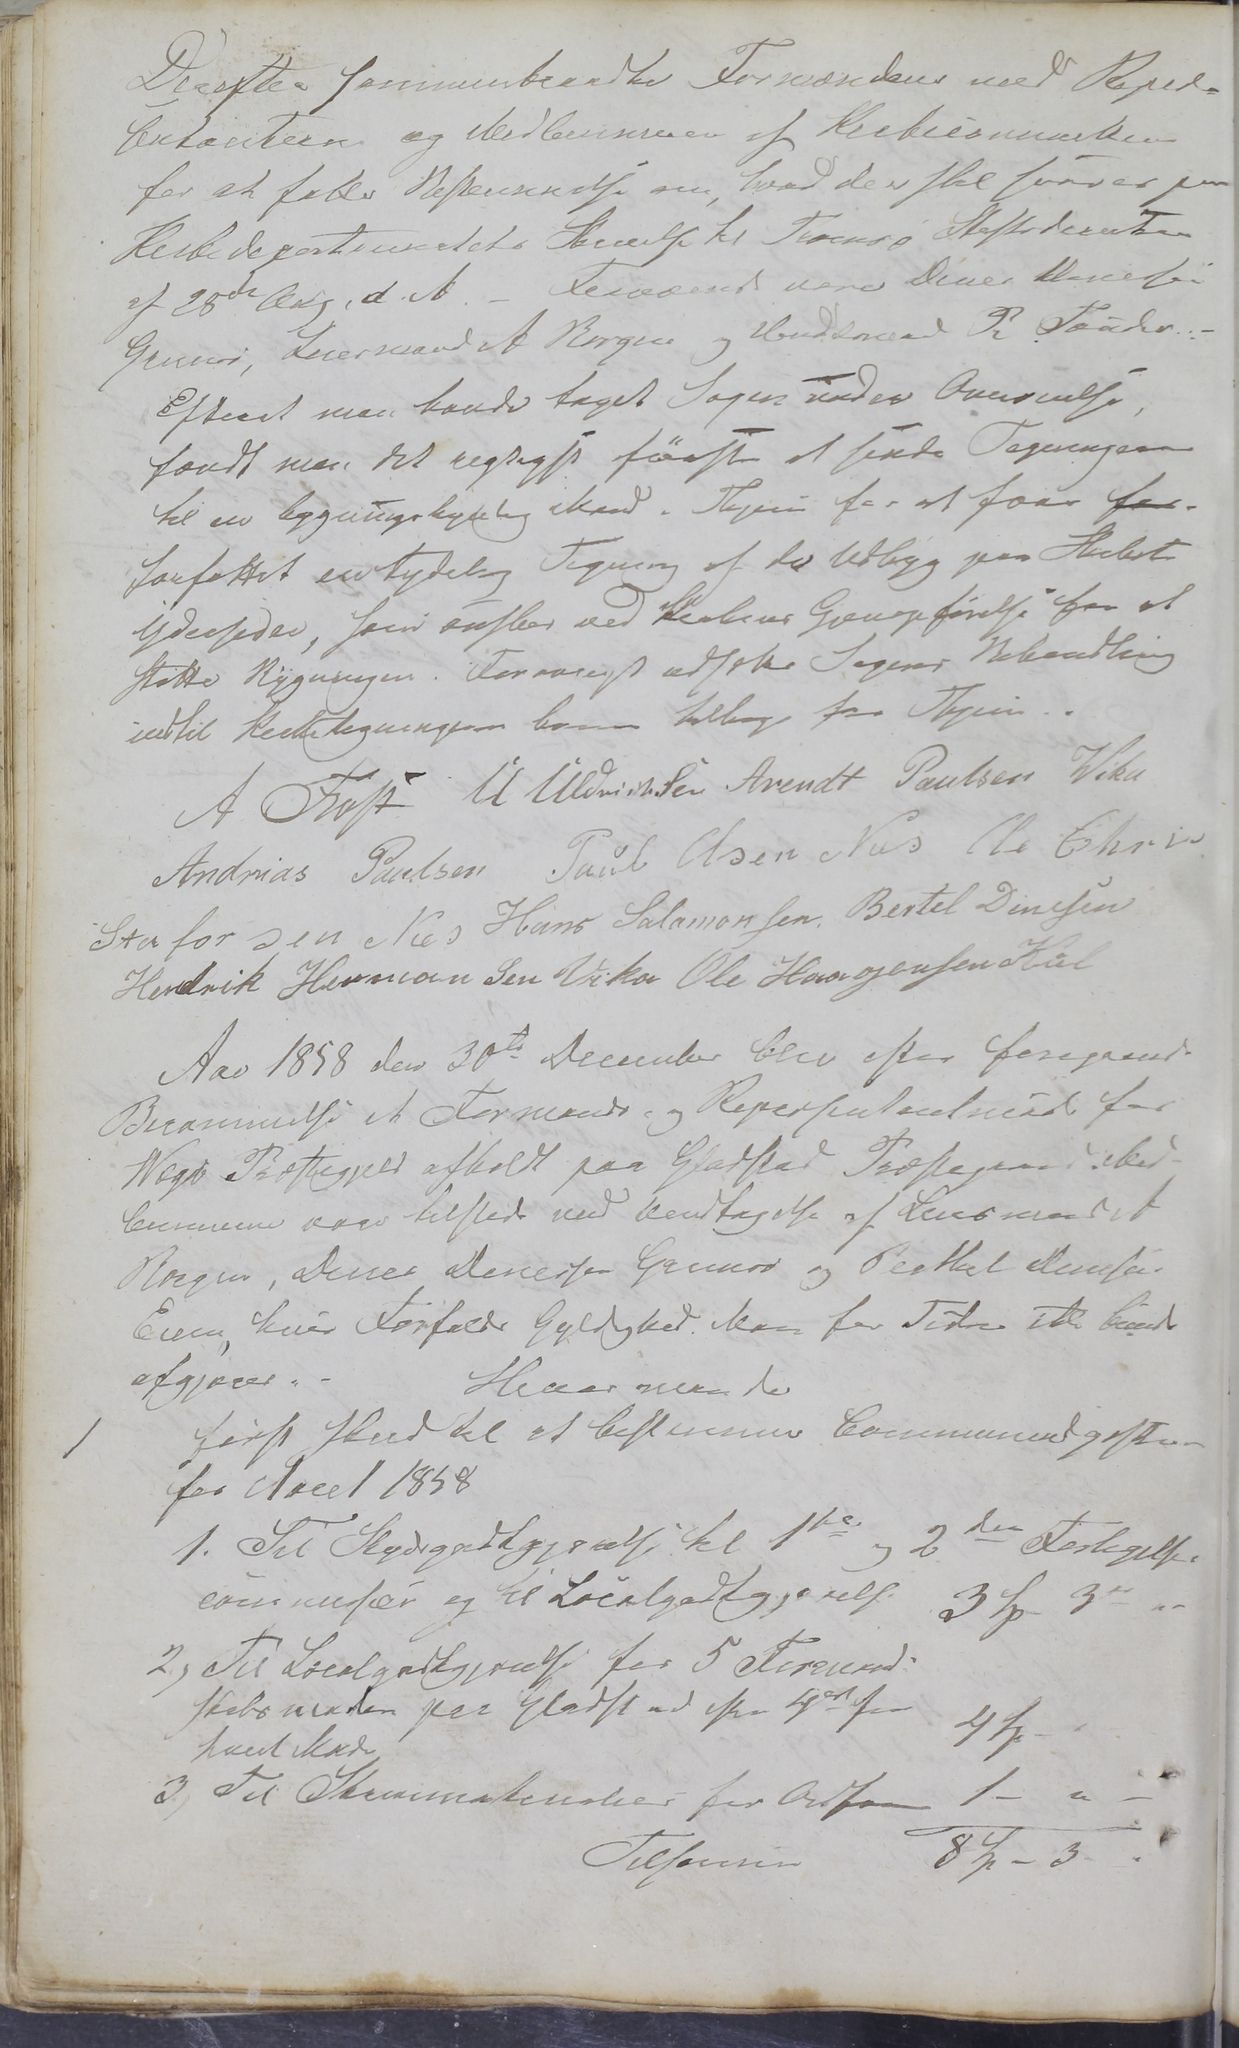 Derefter sammentraadte Formændene med Repræ-
sentanterne og Medlemmerne af Kirkecommissionen
for at fatte Bestemmelse om, hvad der skal svares paa
Kirkedepartementets Skrivelse til Tromsø Stiftsdirektion
af 28de Aug. d. A. – Fraværende vare Dines Danielsen
Grimsø, Lensmand A Borgen og Handelsmand P. Tønder. –
Efterat man havde taget Sagen under Overveielse,
fandt man det rigtigst først at sende Tegningerne
til en bygningskyndig Mand i Thjem for at faae for-
forfattet en tydelig Tegning af de Udbyg paa Skibets
Ydersider, som ønskes ved Kirkens Gjenopførelse for at
støtte Bygningen. Forøvrigt udsættes Sagens Behandling
indtil Kirketegningerne komme tilbage fra Thjem. –
A Frost U Uldriksen Arendt Paulsen Vika
Andrias Paulsen Paul Olsen Nes Ole Chri
Stoforsen Nes Hans Salamonsen. Bertel Dinesen
Hendrik Hermansen Vika Ole Haagensen Kul
Aar 1858 den 30te December blev efter foregaaende
Berammelse et Formands- og Repræsentantmøde for
Vegø Præstegjeld afholdt paa Gladstad Præstegaard. Med-
lemmerne vare tilstede med Undtagelse af Lensmand A
Borgen, Dines Danielsen Grimsø og Berthel Dinesen
Eiem, hvis Forfalds Gyldighed Man for Tiden ikke kunde
afgjøre. – Hvor man da
1 først skred til at bestemme Communeudgifterne
for Aaret 1858
1. Til Skydsgodtgjørelse til 1ste og 2den Forligelses
commissær og til Localgodtgjørelse 3 Sp 3 "
2, Til Localgodtgjørelse for 5 Formand-
skabsmøder paa Gladstad efter 4 ort for
hvert Møde 4 Sp –
3, Til Skrivmaterialier for Ordføreren 1 – " –
Tilsammen 8 Sp – 3 "